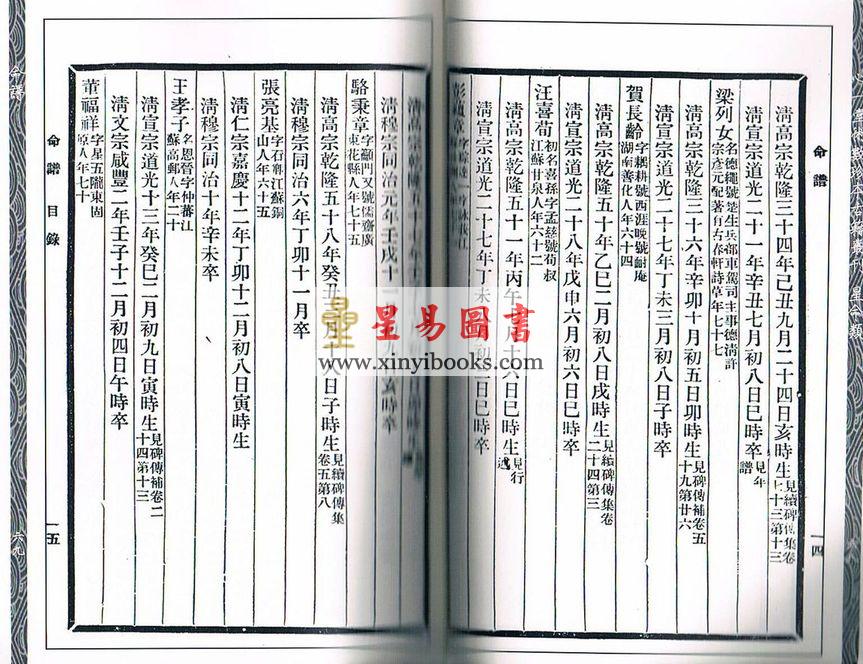 命譜
一四
清高宗乾隆三十四年己丑九月二十四日亥時生 見續碑傳集卷七十三第十三
清宣宗道光二十一年辛丑七月初八日巳時卒 見年譜
梁列女 名德繩號楚生兵部車駕司主事德清許宗彥元配著有古春軒詩草年七十七
清高宗乾隆三十六年辛卯十月初五日卯時生 見碑傳補卷五十九第廿六
清宣宗道光二十七年丁未三月初八日子時卒
賀長齡 字耦耕號西涯晚號耐庵湖南善化人年六十四
清高宗乾隆五十年乙巳二月初八日戌時生 見續碑傳集卷二十四第三
清宣宗道光二十八年戊申六月初六日巳時卒
汪喜荀 初名喜孫字孟慈號荀叔江蘇甘泉人年六十二
清高宗乾隆五十一年丙午 月 十六日巳時生 見行述
清宣宗道光二十七年丁未 初 日巳時卒
彭蘊章
清高宗乾隆五十
清穆宗同治元年壬戌十 亥時卒
駱秉章 字籲門又號儒齋廣東花縣人年七十五
清高宗乾隆五十八年癸丑 月 八日子時生 見續碑傳集卷五第八
清穆宗同治六年丁卯十一月卒
張亮基 字石卿江蘇銅山人年六十五
清仁宗嘉慶十二年丁卯十二月初八日寅時生
清穆宗同治十年辛未卒
王孝子 名恩晉字仲蕃江蘇高郵人年二十
清宣宗道光十三年癸巳二月初九日寅時生 見碑傳補卷二十四第十三
清文宗咸豐二年壬子十二月初四日午時卒
董福祥 字星五隴東固原人年七十
命譜 目錄
一五
命譜
六九
星易圖書
www.xinyibooks.com